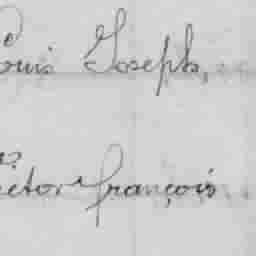 ouis Joseph,
ictor françois